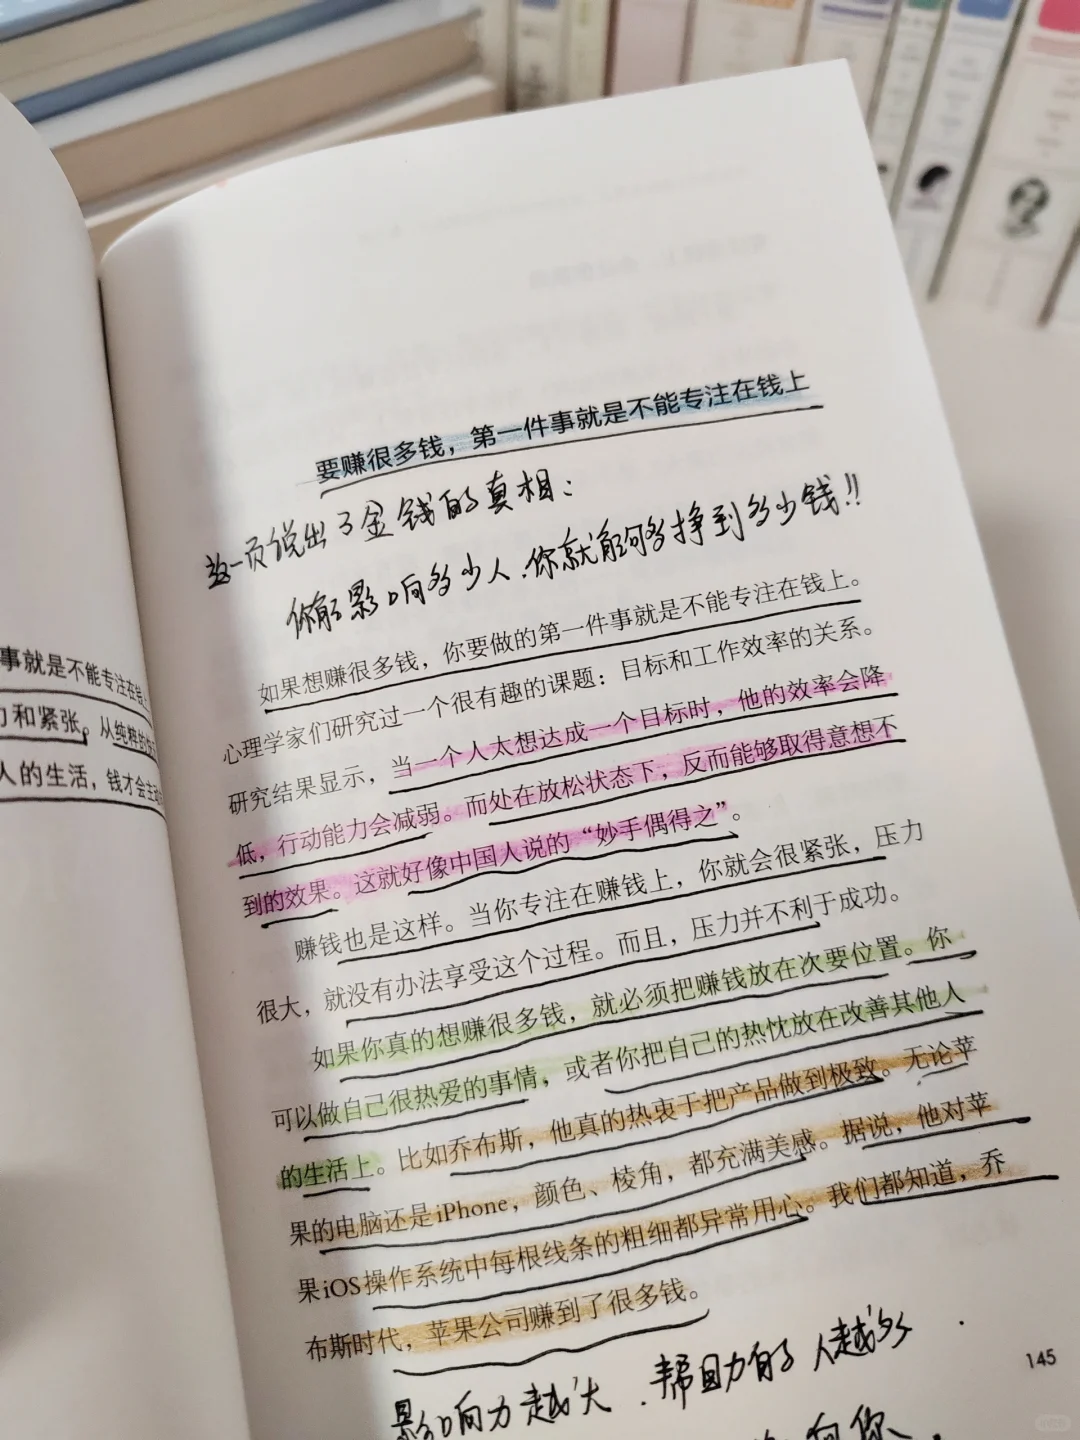 事就是不能专注在钱上
力和紧张。从纯粹的
人的生活，钱才会主动
要赚很多钱，第一件事就是不能专注在钱上
这一页说出了金钱的真相：
你能影响多少人，你就能够挣到多少钱!!
如果想赚很多钱，你要做的第一件事就是不能专注在钱上。
心理学家们研究过一个很有趣的课题：目标和工作效率的关系。
研究结果显示，当一个人太想达成一个目标时，他的效率会降
低，行动能力会减弱。而处在放松状态下，反而能够取得意想不
到的效果。这就好像中国人说的“妙手偶得之”。
赚钱也是这样。当你专注在赚钱上，你就会很紧张，压力
很大，就没有办法享受这个过程。而且，压力并不利于成功。
如果你真的想赚很多钱，就必须把赚钱放在次要位置。你
可以做自己很热爱的事情，或者你把自己的热忱放在改善其他人
的生活上。比如乔布斯，他真的热衷于把产品做到极致。无论苹
果的电脑还是iPhone，颜色、棱角，都充满美感。据说，他对苹
果iOS操作系统中每根线条的粗细都异常用心。我们都知道，乔
布斯时代，苹果公司赚到了很多钱。
影响力越大，帮助的人越多
向你
145